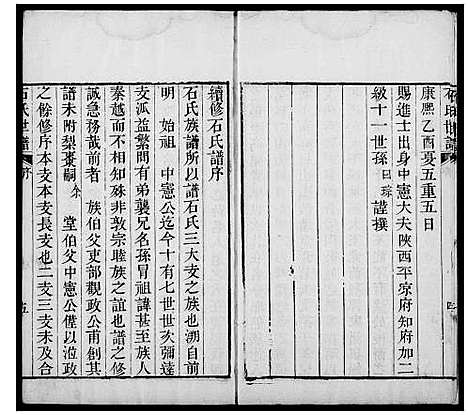 石氏世譜
四
康熙乙酉夏五重五日
賜進士出身中憲大夫陝西平凉府知府加二
級十一世孫曰琮謹撰
續修石氏譜序
石氏族譜所以譜石氏三大支之族也溯自前
明 始祖 中憲公迄今十有七世世次彌遠
支派益繁間有弟襲兄名孫冒祖諱甚至族人
秦越而不相知殊非敦宗睦族之誼也譜之修
誠急務哉前者 族伯父吏部觀政公甫創其
譜未附梨棗嗣余 堂伯父中憲公僅以涖政
之餘修序本支本支長支也二支三支未及合
石氏世譜 序 五